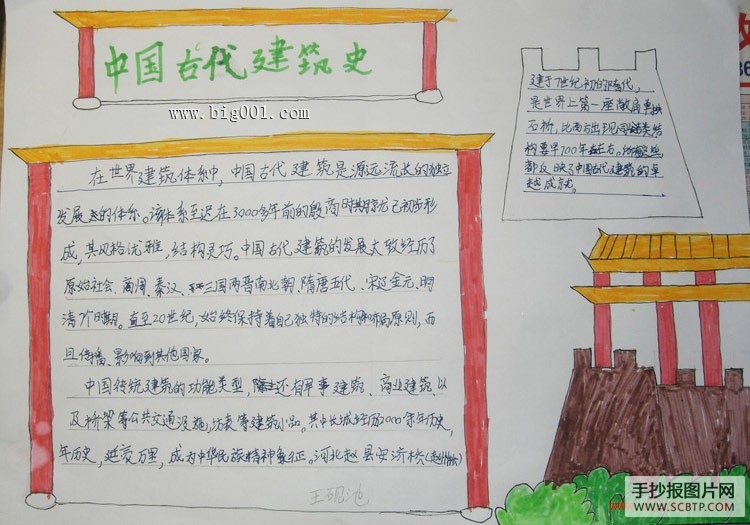 中国古代建筑史
www.big001.com
在世界建筑体系中，中国古代建筑是源远流长的独立
发展的体系。该体系至迟在3000多年前的殷商时期就已初步形
成，其风格优雅，结构灵巧。中国古代建筑的发展大致经历了
原始社会、商周、秦汉、三国两晋南北朝、隋唐五代、宋辽金元、明
清7个时期。直至20世纪，始终保持着自己独特的结构和布局原则，而
且传播、影响到其他国家。
中国传统建筑的功能类型，除还有军事建筑、商业建筑、以
及桥梁等公共交通设施，坊表等建筑小品。其中长城经历2000余年历史，
年历史，延袤万里，成为中华民族精神象征。河北赵县安济桥（赵州桥）
建于7世纪初的隋代，
是世界上第一座敞肩单拱
石桥，比西方出现同类结
构要早700年左右。
都反映了中国古代建筑的卓
越成就。
王砚池
手抄报图片网
WWW.SCBTP.COM